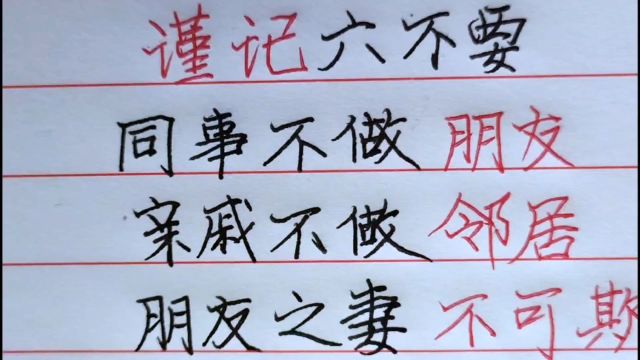 谨记六不要
同事不做朋友
亲戚不做邻居
朋友之妻不可欺